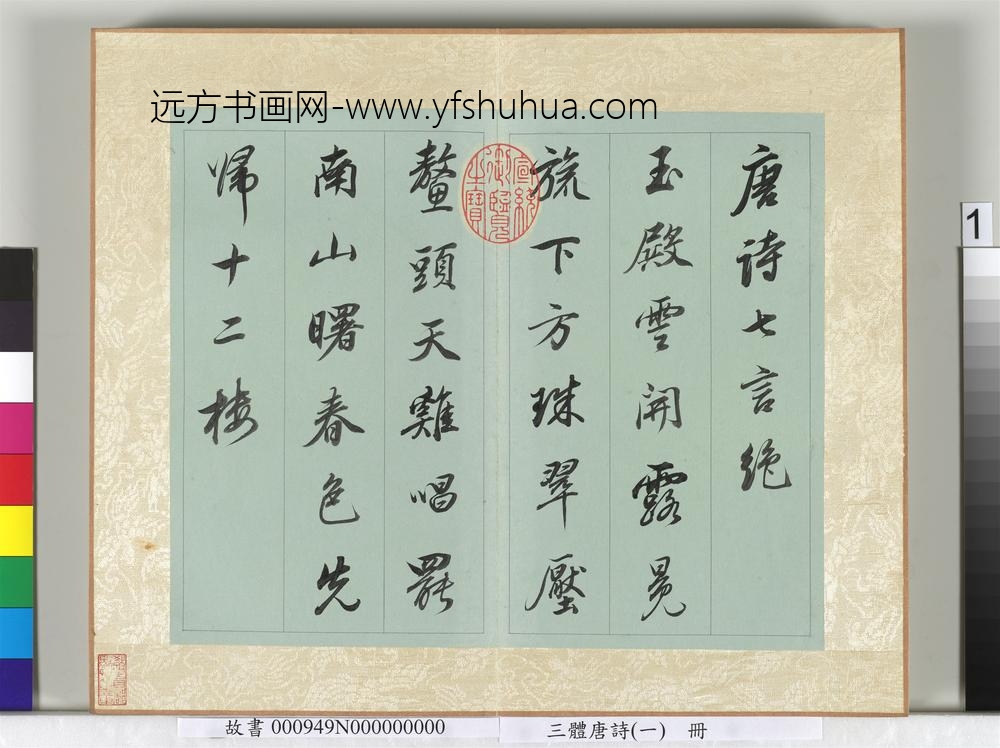 远方书画网-www.yfshuhua.com
唐詩七言絶
玉殿雲開露冕
旒下方珠翠壓
鼇頭天雞唱罷
南山曙春色先
歸十二樓
宣統御覽之寶
1
故書 000949N000000000
三體唐詩(一) 冊